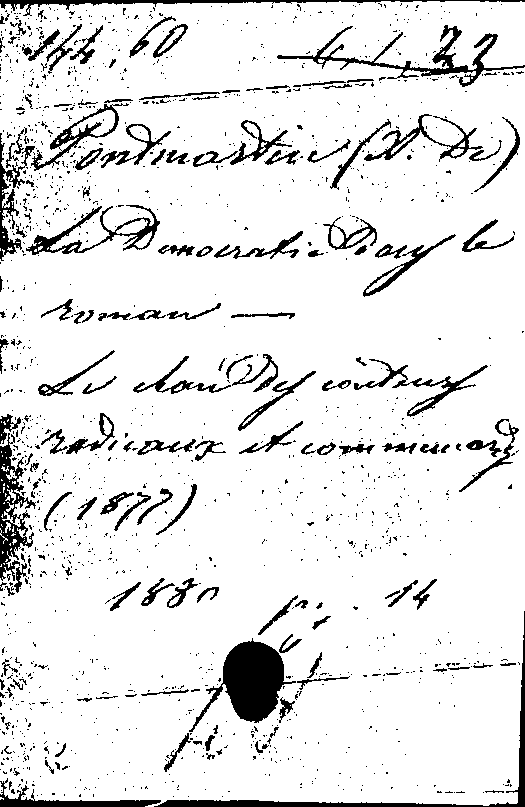 144.60 6.1.23
Pontmartin (A. De)
La Democratie Dans le
roman —
Le chari Des conteurs
radicaux et communards
(1877)
1880 14